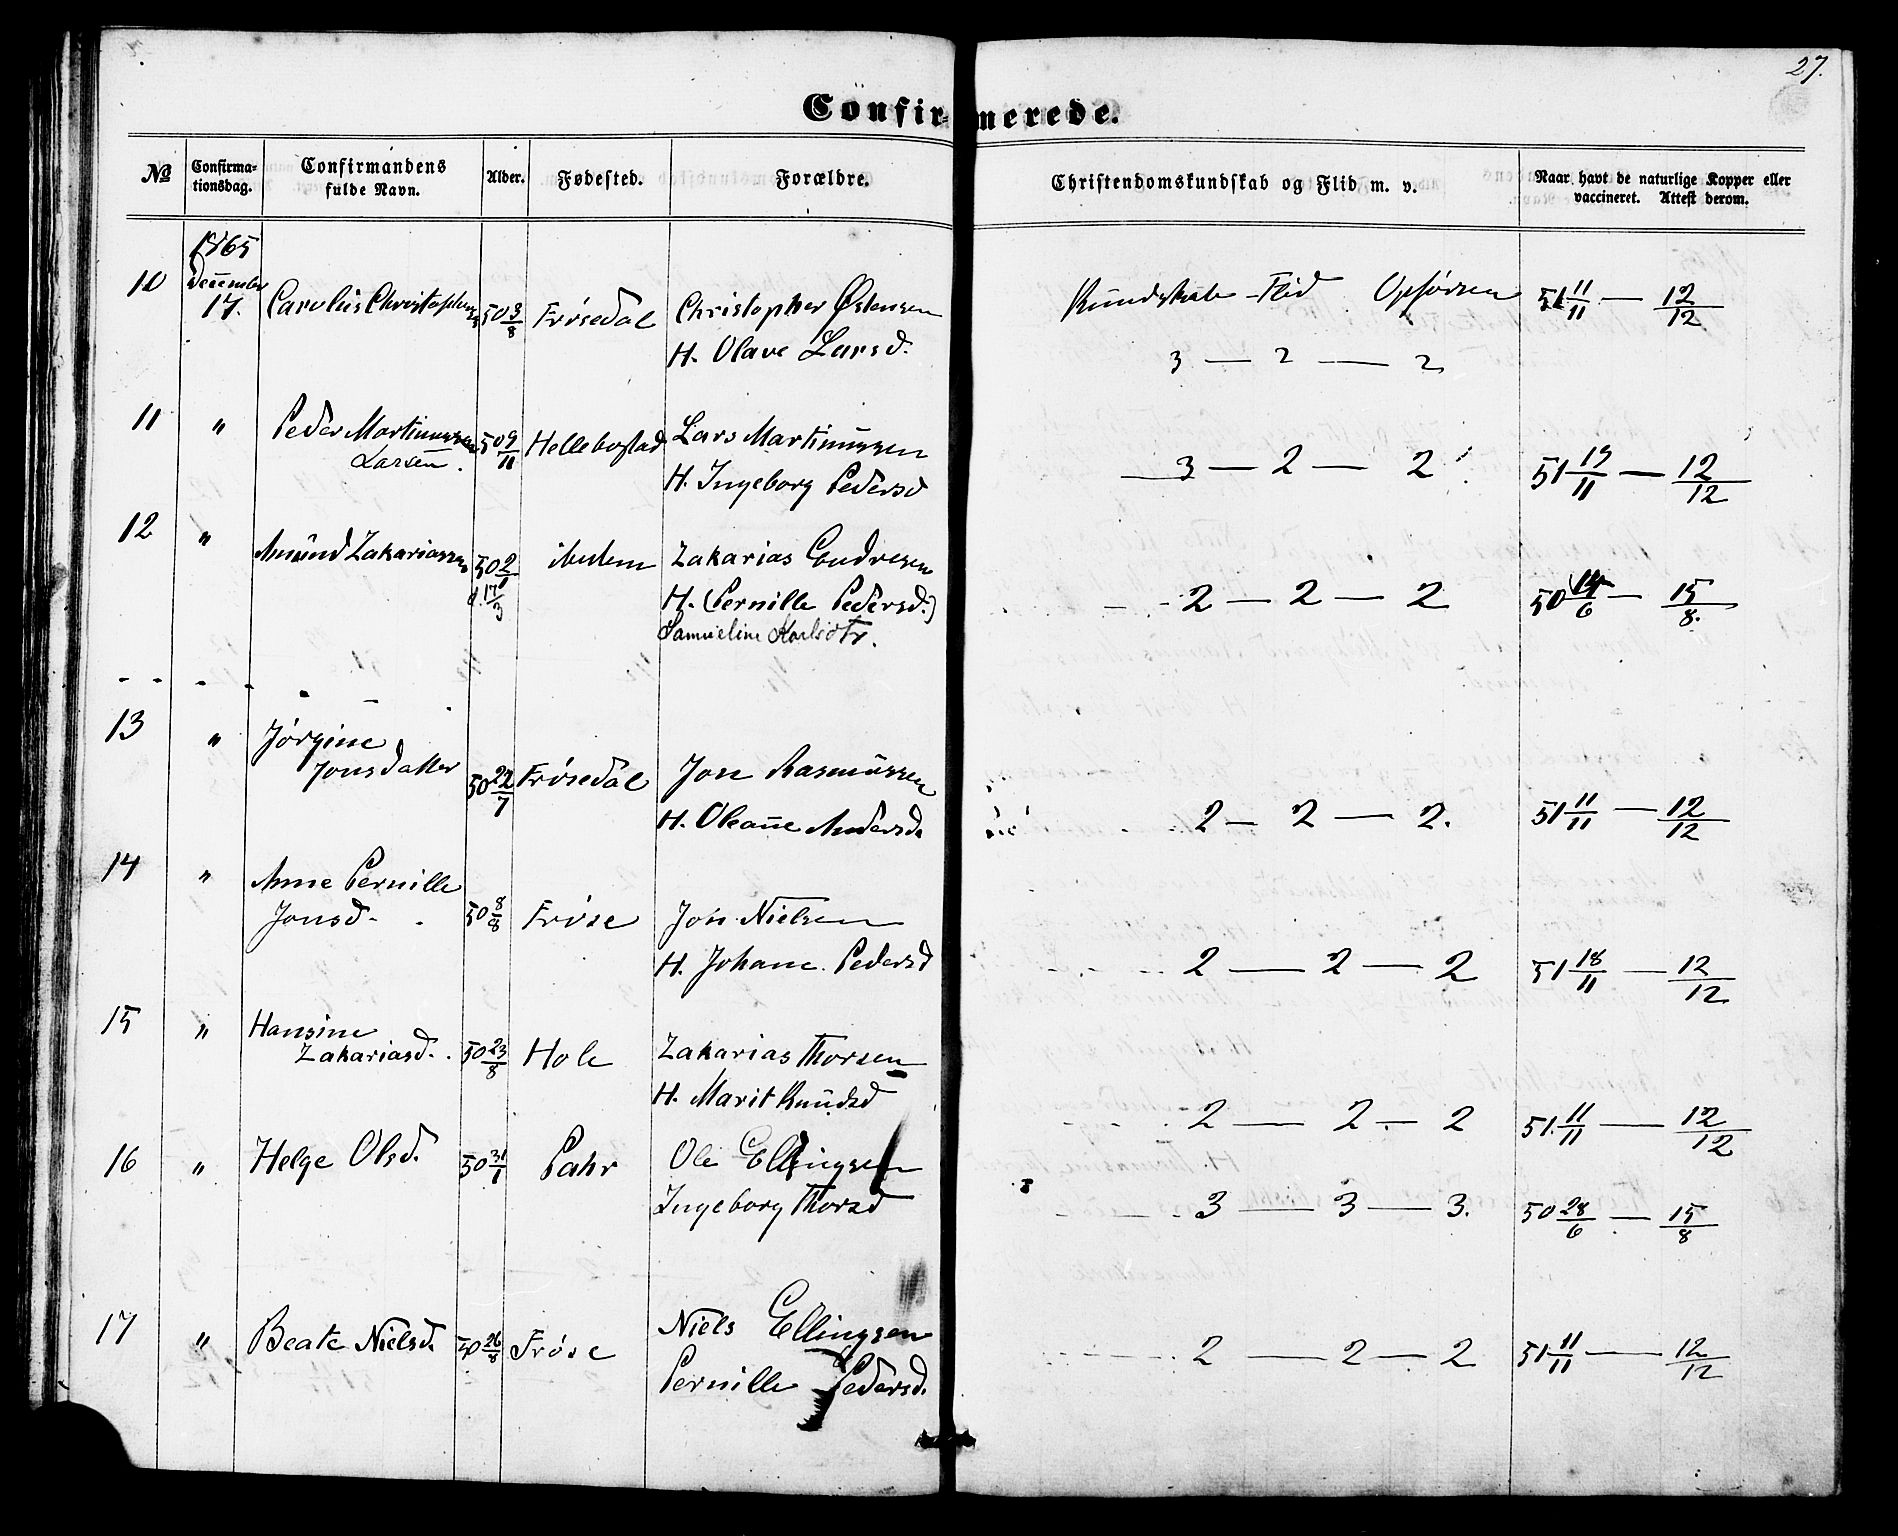 27.
Confirmerede.
№ Confirmationsdag. Confirmandens fulde Navn. Alder. Fødested. Forældre. Christendomskundskab og Flid m. v. Naar havt de naturlige Kopper eller vaccineret. Attest derom.
1865
December
10 17. Carolus Christophersen 50 3/8 Frøsedal Christopher Østensen Kundskab - Flid Opførsen 51 11/11 — 12/12
H. Olave Larsd. 3 — 2 — 2
11 " Peder Martinussen 50 9/11 Hellebostad Lars Martinussen 3 — 2 — 2 51 19/11 — 12/12
Larsen. H. Ingeborg Pedersd
12 " Amund Zakariassen 50 2/1 ibidem Zakarias Endresen 2 — 2 — 2 50 14/6 — 15/8.
d. 17/3 H. (Pernille Pedersd.)
Samueline Karlsdtr.
13 " Jørgine
Jonsdatter 50 22/7 Frøsedal Jon Rasmussen 2 — 2 — 2. 51 11/11 — 12/12
H. Oleane Andersd.
14 " Anne Pernille
Jonsd. 50 8/8 Frøse Jon Nielsen 2 — 2 — 2 51 18/11 — 12/12
H. Johane Pedersd
15 " Hansine
Zakariasd. 50 23/8 Hole Zakarias Thorsen 2 — 2 — 2 51. 11/11 — 12/12
H. Marit Knudsd
16 " Helge Olsd. 50 31/1 Pahr Ole Ellingsen 3 — 3 — 3. 50 28/6 — 15/8
Ingeborg Thorsd
17 " Beate Nielsd. 50 26/8 Frøse Niels Ellingsen 2 — 2 — 2 51 11/11 — 12/12
Pernille Pedersd.